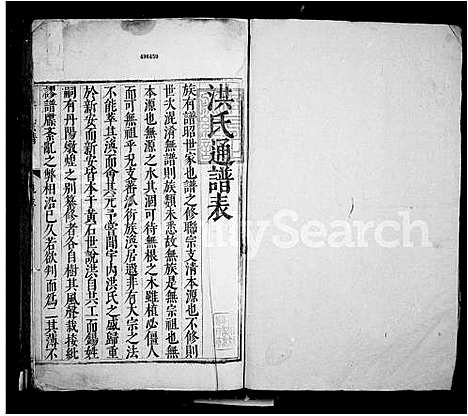 496459
洪氏通譜表
族有譜昭世家也譜之修聯宗支清本源也不修則
世次混淆無譜則族類未悉故無族是無宗祖也無
本源也無源之水其涸可待無根之木雖植必僵人
而可無祖乎況支蕃派衍族涣居遐非有大宗之法
不能萃其涣而會其元予嘗閱宇內洪氏之盛歸重
於新安而新安皆本于黄石世說洪自共工而錫姓
嗣有丹陽燉煌之別纂修者各自樹其風聲裁接紕
謬譜牒紊亂之弊相沿已久若欲判而為二其薄不
MySearch